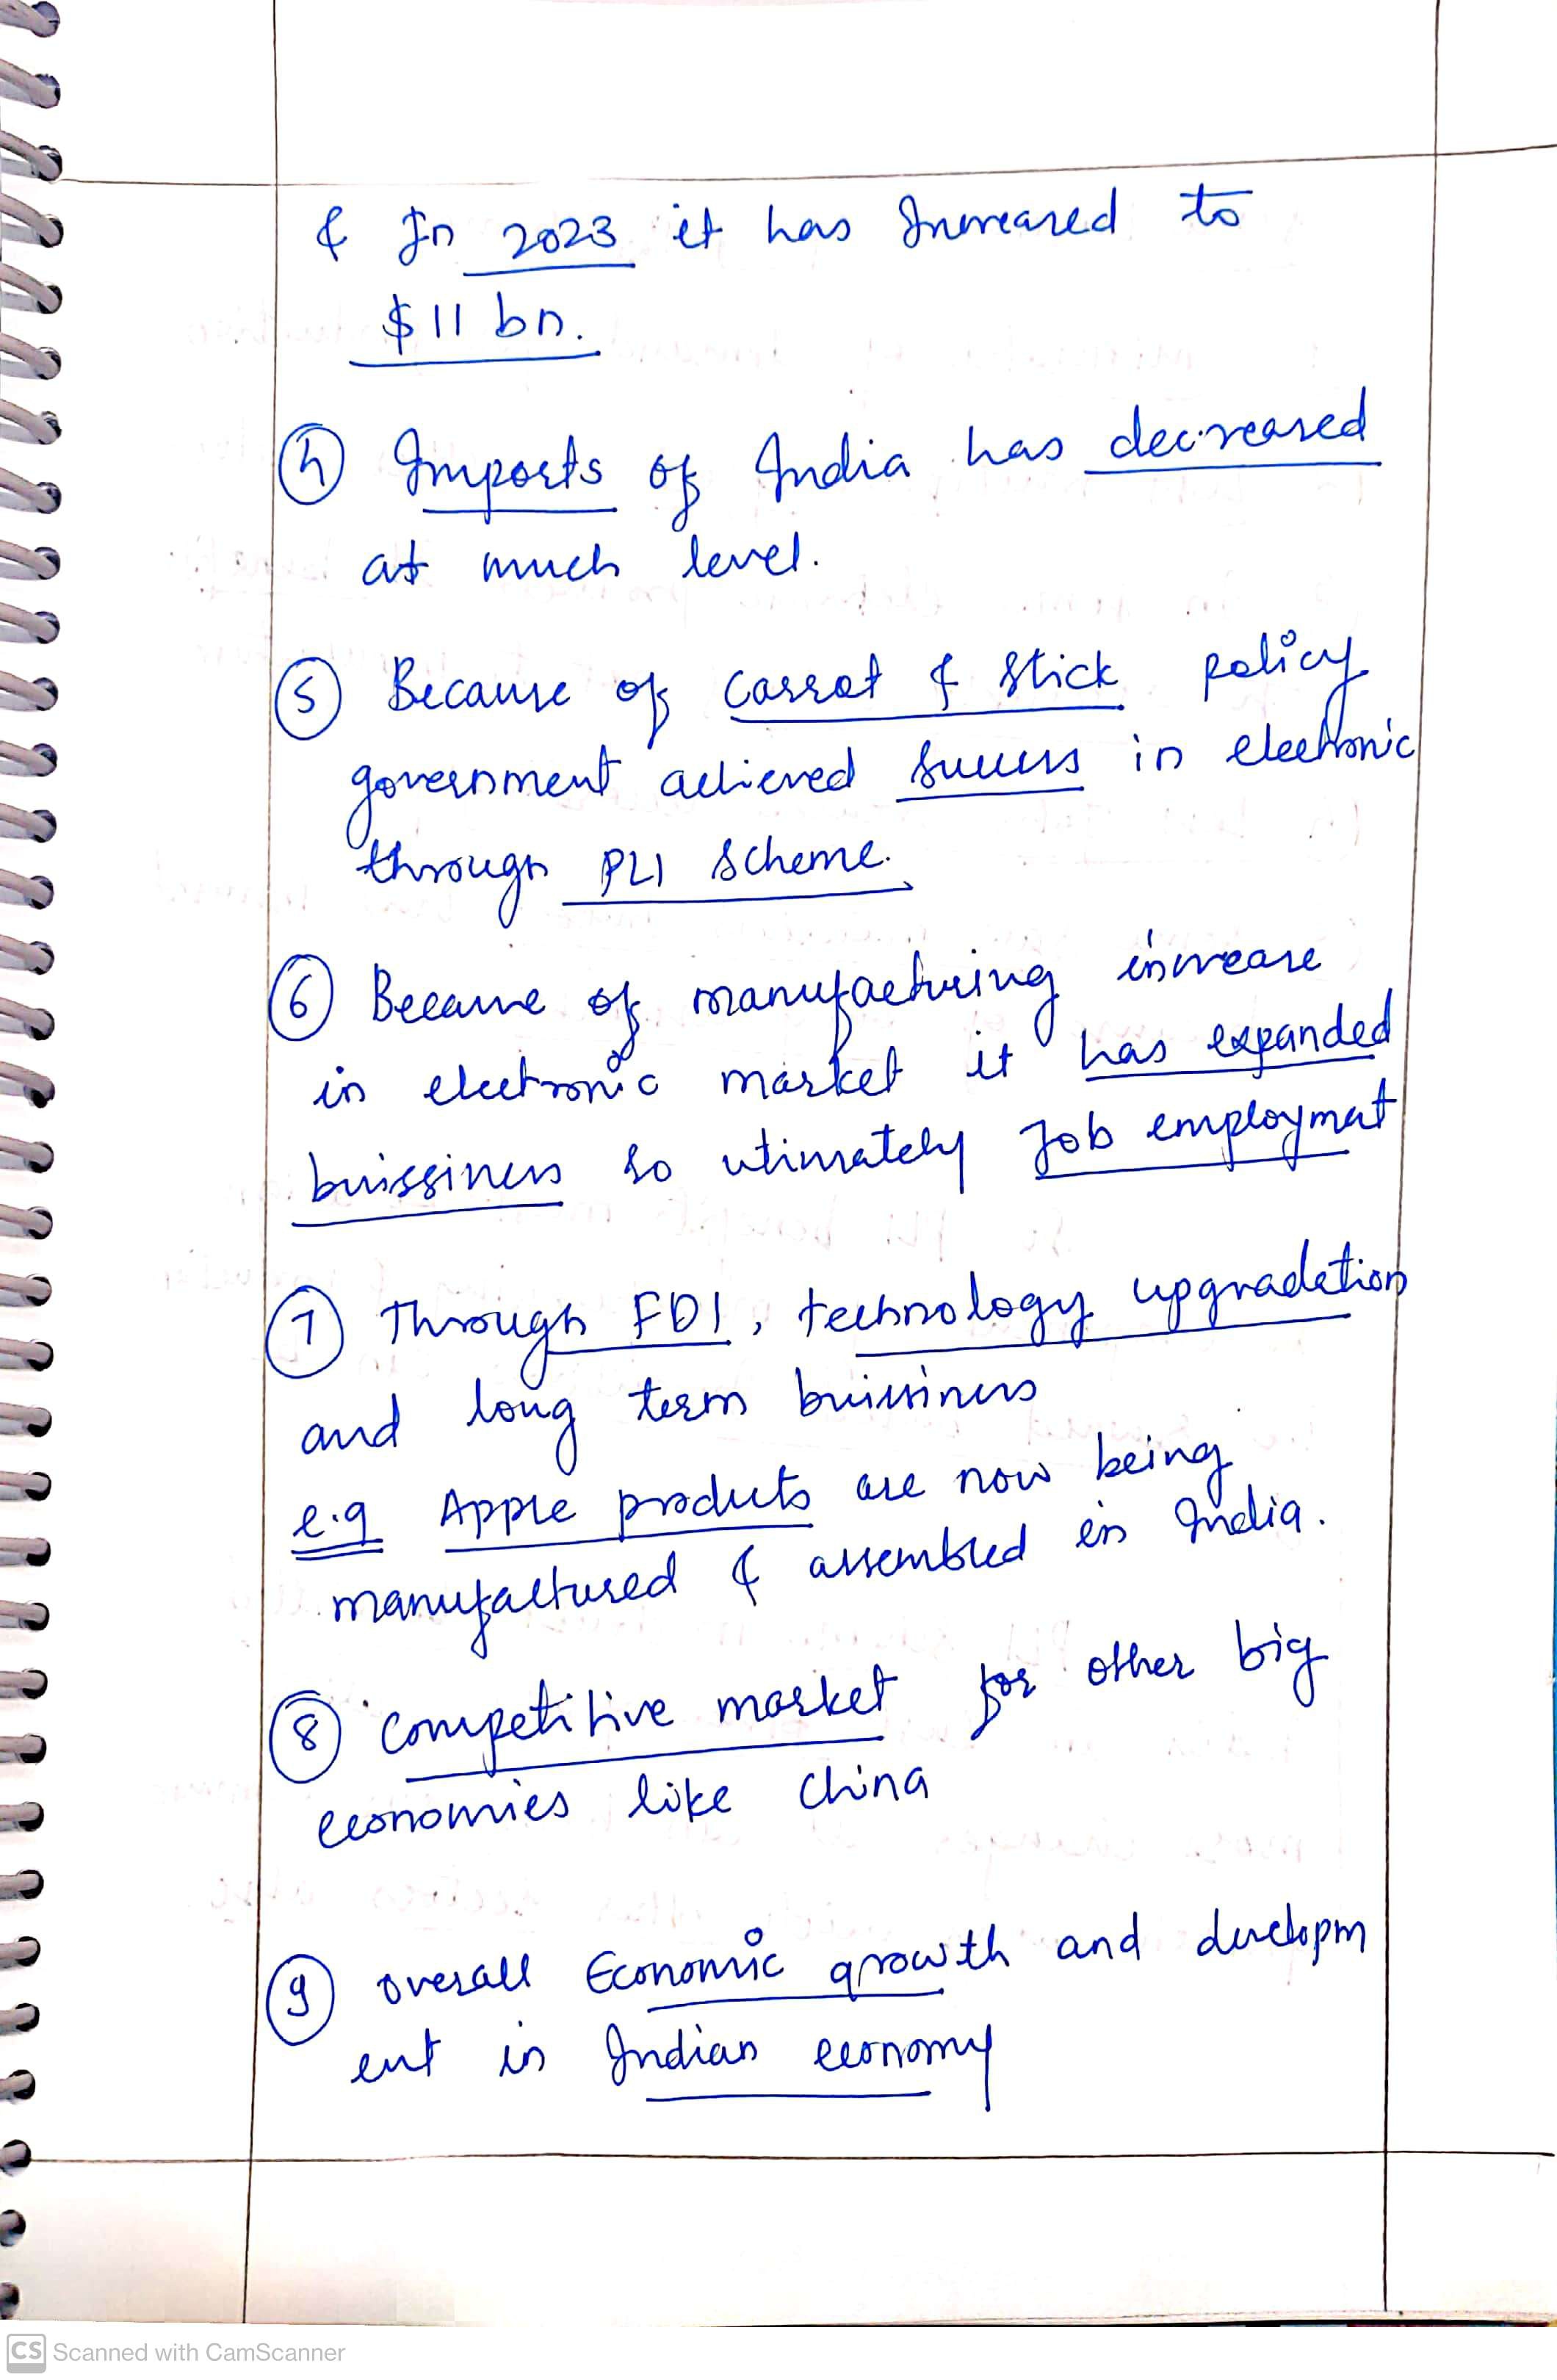 & In 2023 it has Increased to
$11 bn.
④ Imports of India has decreased
at much level.
⑤ Because of carrot & stick policy
government achieved success in electronic
through PLI scheme.
⑥ Because of manufacturing increase
in electronic market it has expanded
buissiness so utimately Job employmat
⑦ Through FDI, technology upgradetion
and long term buissiness
e.g Apple products are now being
manufactured & assembled in India.
⑧ competitive market for other big
economies like China
⑨ overall Economic growth and developm
ent in Indian economy
CS Scanned with CamScanner